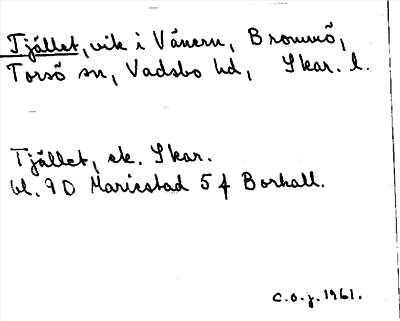 Tjället, vik i Vänern, Brommö,
Torsö sn, Vadsbo hd, Skar. l.
Tjället, ek. Skar.
bl. 9D Mariestad 5 f Borhall.
C.O.J. 1961.